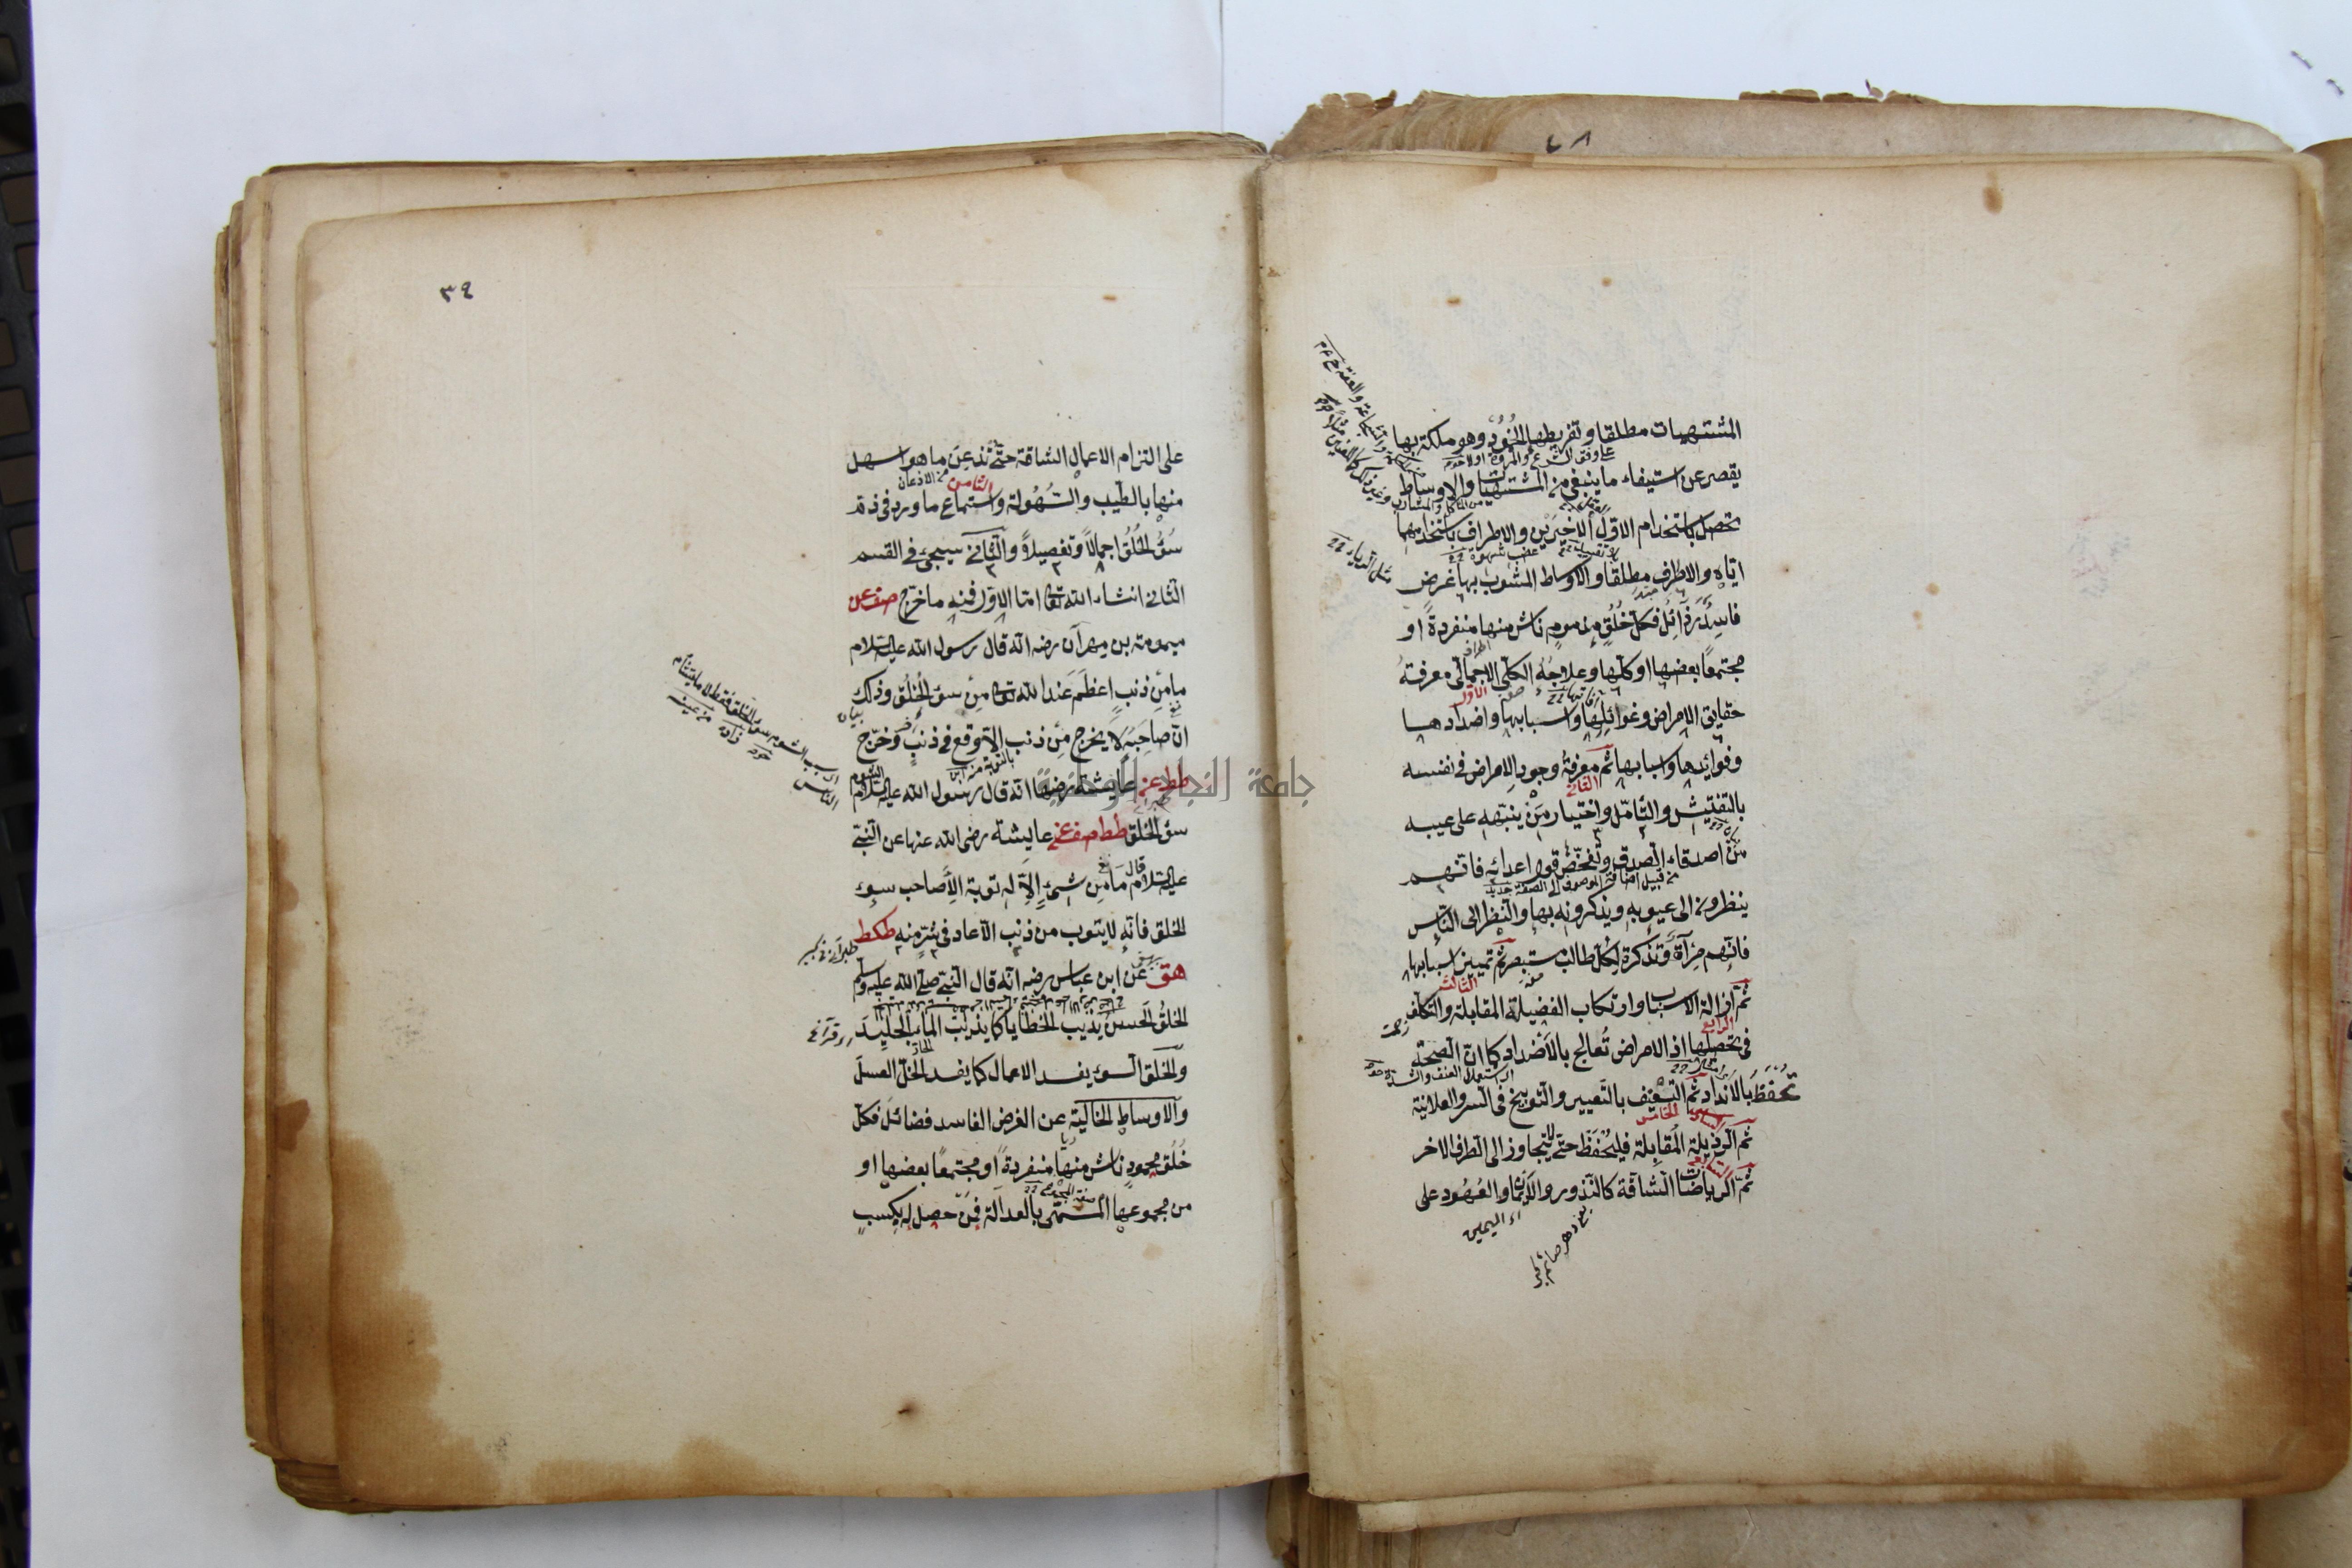 ٤٨
المشتهيات مطلقا وتفريطها الخُمُود وهو ملكة بها
على وفق الشرع والمروة اولا
يقصر عن استيفاء ما ينبغى من المشتهيات والاوساط
من المأكل والمشارب
تحصل باستخدام الاوّل الاخيرَيْن والاطراف باستخدامهما
ايّاه والاطراف مطلقا والاوساط المشوب بها غرض
فاسِدٌ رَذَائِلُ فكلّ خُلُقٍ مذموم ناشٍ منها منفردةً او
مجتمعًا بعضها او كلّها وعلاجُهُ الكلّى الاجمالى معرفةُ
الاوّل
حقايق الامراض وغوائِلِها واسبابها واضدادها
وفوائدها واسبابها ثم معرفة وجود الامراض فى نفسه
الثانى
بالتفتيش والتأمّل واختيار مَنْ ينبّهه على عيبه
من اصدقاء الصدق وتفحّص قول اعدائه فانهم
من قبيل اضافة الموصوف الى الصفة
ينظرون الى عيوبه ويذكرونه بها والنظر الى الناس
فانهم مِرْآة وتذكرة لكلّ طالب مستبصر ثم تمييز اسبابها
الثالث
ثم ازالة الاسباب وارتكاب الفضيلة المقابلة والتكلّف
الرابع
فى تحصيلها اذ الامراض تُعالج بالاضداد كما انّ الصحة
استعمال العنف والشدة
تُحْفَظُ بالانداد ثم التعنيف بالتعيير والتوبيخ فى السر والعلانية
السادس الخامس
ثم الرذيلة المُقابِلة فليُحْفَظ حتى لا يتجاوز الى الطرف الاخر
السابع
ثم الرياضات الشاقة كالنّذور والايمان والعُهُود على
اليمين
٣٤
على التزام الاعمال الشاقة حتى تذعن ما هو اسهل
الثامن من الاذعان
منها بالطيب والسُّهُولة واستماع ما ورد فى ذمّ
سُوْءِ الخُلُق اجمالاً وتفصيلاً والثانى سيجئ فى القسم
الثانى انشاء الله تعالى امّا الاوّل ففيه ما خرّج صف عن
ميمونة بن مِهرَان رضه انه قال رسول الله عليه السلام
ما مِن ذنبٍ اعظَمَ عند الله تعالى مِن سوءِ الخُلُق وذلك
انّ صاحِبَه لا يخرج مِن ذنب الاّ وقع فى ذنب وخرّج
بالتوبة منه
الشوم
طط عن عايشة رضها انه قال رسول الله عليه السلام
سوء الخُلُق طط صف عن عايشة رضى الله عنها عن النبىّ
عليه السلام قال ما مِن شئٍ الاّ له توبة الاّ صاحب سوء
الخلق فانّه لا يتوب من ذنب الاّ عاد فى شرّ منه طكط
طبرانى فى كبير
هق عن ابن عباس رضه انّه قال النبىّ صلى الله عليه وسلم
الخلقُ الحسنُ يُذيب الخطايا كما يذيبُ الماءُ الجليدَ
والخلق السوء يفسد الاعمال كما يفسد الخلّ العسل
والاوساط الخالية عن الغرض الفاسد فضائلُ فكلّ
خُلُقٍ محمودٍ ناشٍ منها منفردةً او مجتمعًا بعضها او
من مجموعها المسمّى بالعدالة فمن حصل له بكسبٍ
جامعة النجاح الوطنية